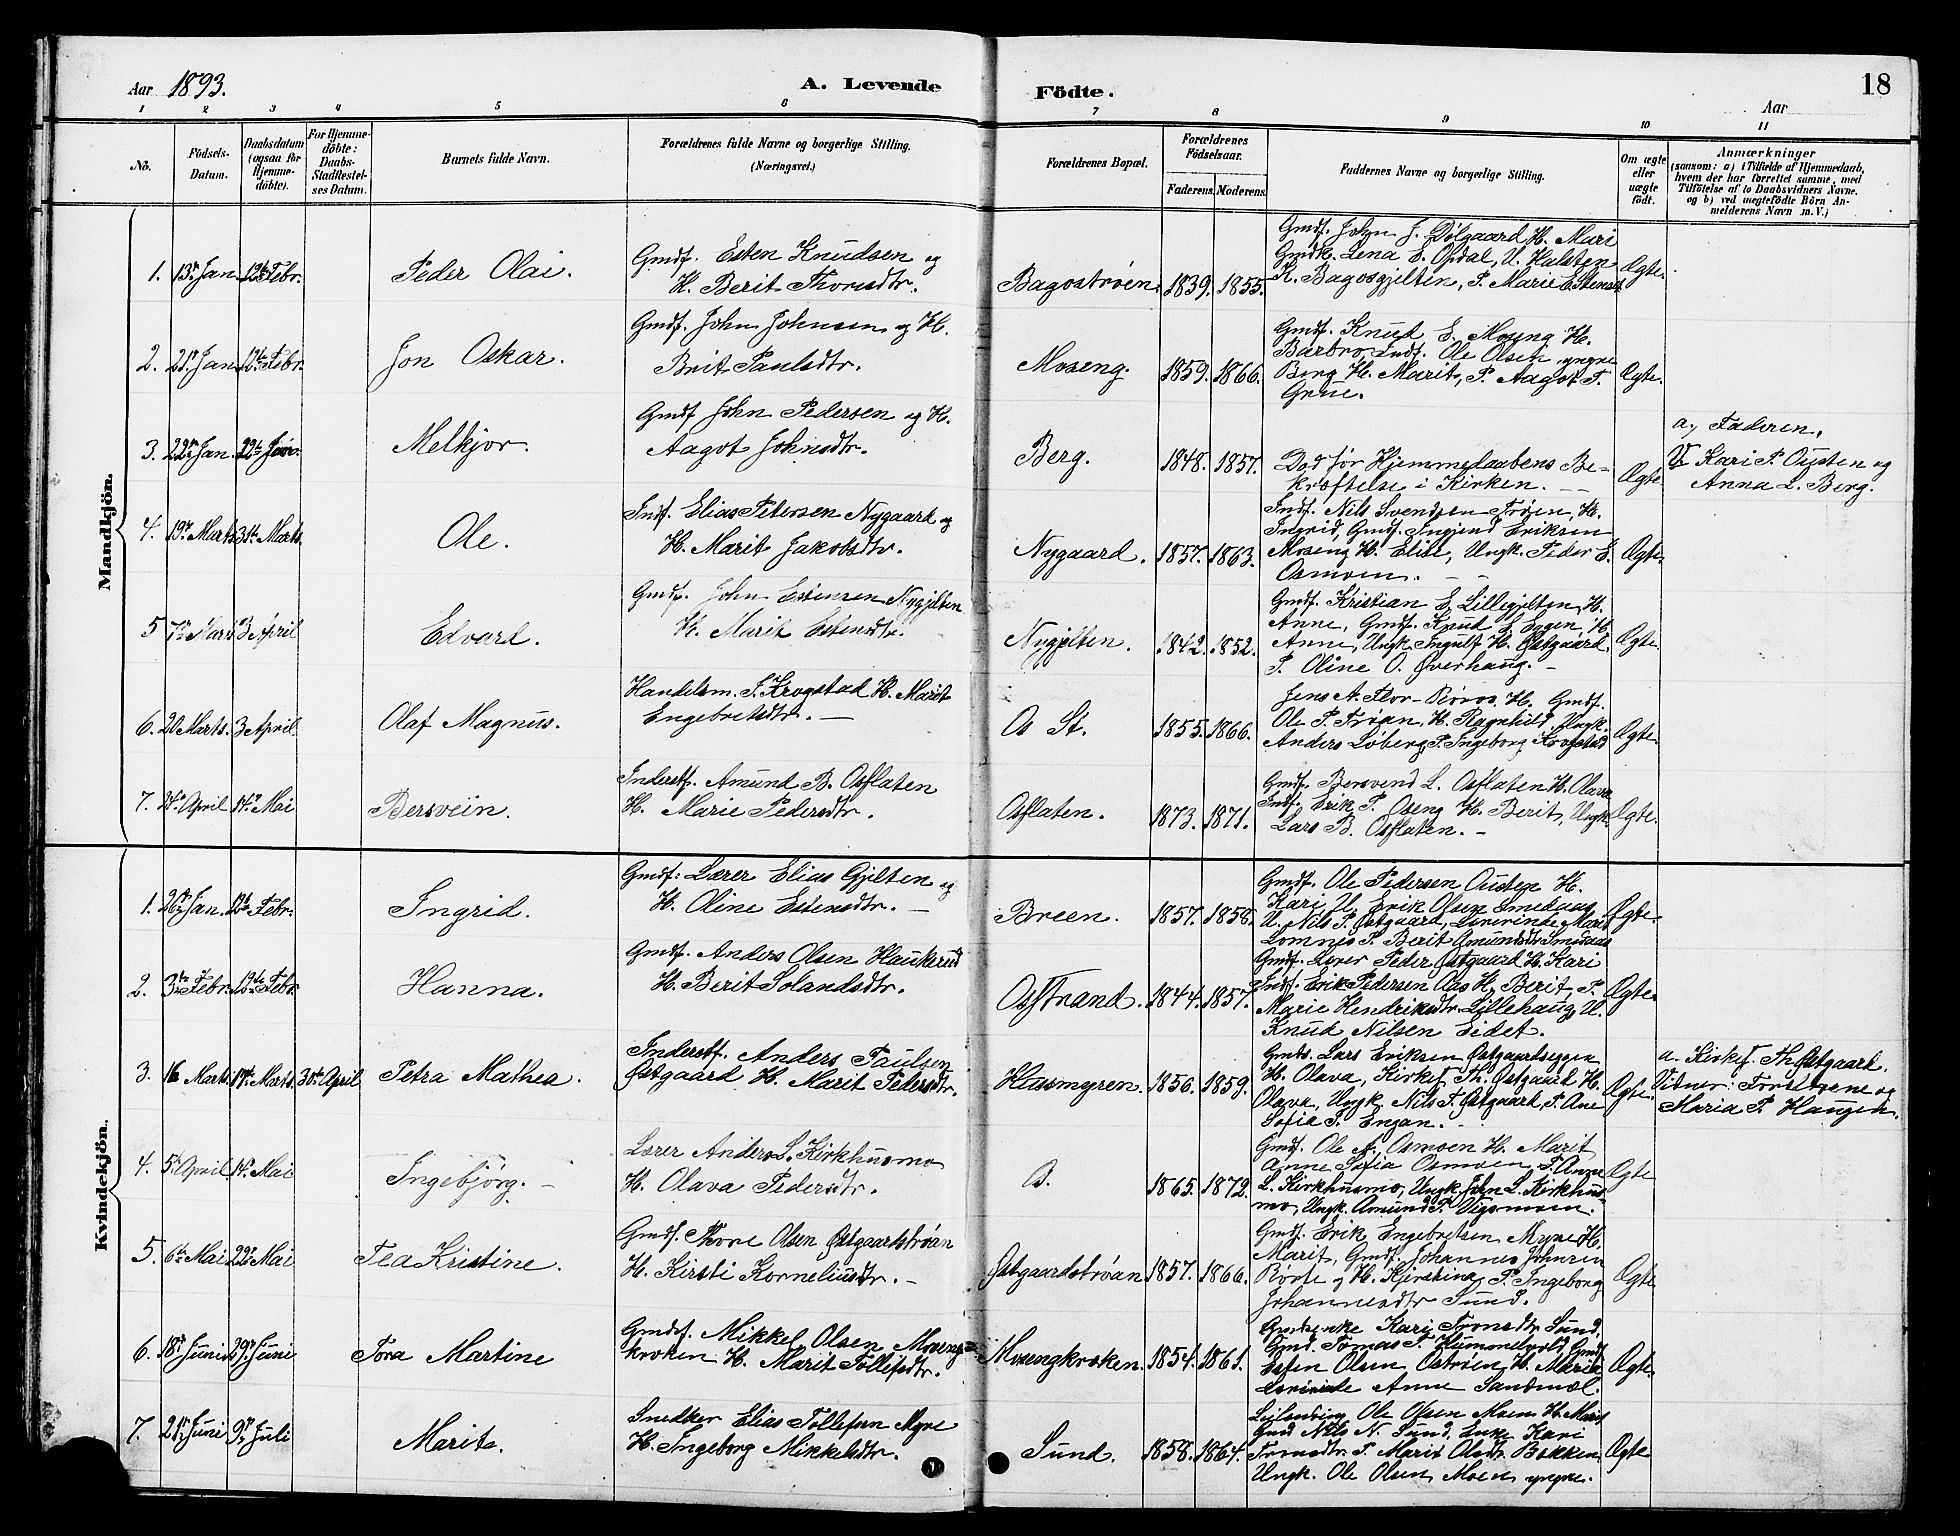 Aar 1893.
A. Levende Födte.
Aar
18
1 2 3 4 5 6 7 8 9 10 11
No.
Födsels-
Datum.
Daabsdatum
(ogsaa for
Hjemme-
döbte).
For Hjemme-
döbte:
Daabs-
Stadfestel-
ses Datum.
Barnets fulde Navn.
Forældrenes fulde Navne og borgerlige Stilling.
(Næringsvei.)
Forældrenes Bopæl.
Forældrenes
Födselsaar.
Faderens. Moderens.
Faddernes Navne og borgerlige Stilling.
Om ægte
eller
uægte
födt.
Anmærkninger
(saasom: a) i Tilfælde af Hjemmedaab,
hvem der har forrettet samme, med
Tilföielse af to Daabsvidners Navne,
og b) ved uægtefödte Börn An-
melderens Navn m. V.)
Mandkjön.
1. 13de Jan. 12te Febr. Peder Olai.
Gmdf. Esten Knudsen og
H. Berit Thorsdtr.
Bagostrøen. 1839. 1855.
Gmdf. John J. Dølgaard H. Mari
Gmdk. Lena E. Opdal, U. Halsten
K. Bagosgjelten, P. Marie E. Stensa
Ægte.
2. 21de Jan. 12te Febr. Jon Oskar.
Gmdf. John Johnsen og H.
Brit Paulsdtr.
Moseng. 1859. 1866.
Gmdf. Knud E. Moseng H.
Barbro, Indf. Ole Olsen yngre
Berg H. Marit, P. Aagot T.
Grue.
Ægte.
3. 22de Jan. Melkjor.
Gmdf John Pedersen og H.
Aagot Johnsdtr.
Berg. 1848. 1857.
Død før Hjemmedaabens Be-
kræftelse i Kirken. —
Ægte.
a, Faderen.
V. Kari P. Ousten og
Anna L. Berg.
4. 19de Marts 31te Marts. Ole.
Indf. Elias Petersen Nygaard og
H. Marit Jakobsdtr.
Nygaard. 1857. 1863.
Indf. Nils Svendsen Trøen, H.
Ingrid, Gmdf. Ingjend Eriksen
Moseng H. Elise, Ungk. Peder E.
Osmoen. —
Ægte.
5 7de Mars 3 April Edvard.
Gmdf. John Estensen Nygjelten
H. Marit Estensdtr.
Nygjelten. 1842. 1852.
Gmdf. Kristian E. Lillegjelten, H.
Anne, Gmdf. Knud E. Eggen H.
Anne, Ungk. Ingulf H. Østgaard.
P. Oline O. Øverhaug. —
Ægte.
6. 20 Marts. 3 April Olaf Magnus.
Handelsm. I. Krogstad H. Marit
Engebretsdtr. —
Os St. 1855. 1866.
Jens N. Flor- Røros H. Gmdf.
Ole P. Trøan, H. Ragnhild, Ungk.
Anders Løberg, P. Ingeborg Krogstad
Ægte.
7. 24de April 14de Mai Bersveiin.
Inderstf. Amund B. Osflaten
H. Marie Pedersdtr.
Osflaten. 1873. 1871.
Gmdf. Bersvend L. Osflaten H. Olava
Indf. Erik P. Oseng H. Berit, Ungk.
Lars B. Osflaten. —
Ægte.
Kvindekjön.
1. 26de Jan. 12te Febr. Ingrid.
Gmdf: Lærer Elias Gjelten og
H. Oline Estensdtr. —
Breen. 1857. 1858.
Gmdf. Ole Pedersen Ousten H.
Kari U. Erik Olsen Smedaas
U. Nils P. Østgaard, Lærerinde Marit
Lomnes P. Berit Amundsdtr Smedaas
Ægte.
2. 3de Febr. 12te Febr. Hanna.
Gmdf. Anders Olsen Haukerud
H. Berit Solandsdtr.
Osstrand. 1844. 1857.
Gmdf. Lærer Peder Østgaard H. Kari
Indf. Erik Pedersen Aas H. Berit P.
Marie Hendriksdtr Lillehaug, U.
Knud Nilsen Eidet.
Ægte.
3. 16 Marts. 17de Marts. 30te April Petra Mathea.
Inderstf. Anders Paulsen
Østgaard H. Marit Pedersdtr.
Hasmyren. 1856. 1859.
Gmds. Lars Eriksen Østgaardseggen
H. Olava, Kirkes. Th. Østgaard H.
Olava, Ungk. Nils T. Østgaard, P. Ane
Sofie P. Engan. —
Ægte.
a. Kirkes. Th. Østgaard.
Vidner: Forældrene og
Maria P. Haugen.
4. 5te April 14de Mai Ingebjørg. —
Lærer Anders L. Kirkhusmo
H. Olava Pedersdtr.
O. 1865. 1872.
Gmdf. Ole A. Osmoen H. Marit
Anne Sofia Osmoen, P. Anne
L. Kirkhusmo, Ungk. John L. Kirkhus-
mo, Ungk. Amund P. Vigsmoen.
Ægte
5. 6te Mai 22de Mai Tea Kristine.
Gmdf. Thore Olsen Østgaardstrøan
H. Kirsti Korneliusdtr. —
Østgaardstrøan 1857. 1866.
Gmdf. Erik Engebretsen Myre H.
Marit, Gmdf. Johannes Johnsen
Røste og H. Kjerstina P. Ingeborg
Johannesdtr Sund.
Ægte
6. 18de Juni 29de Juni Tora Martine
Gmdsf. Mikkel Olsen Moseng=
kroken H. Marit Tollefsdtr.
Mosengkroken. 1854. 1861.
Gmdsenke Kari Tronsdtr Sund,
Gmd. Tomas T. Hummelvold, Gmdf.
Esten Olsen Ostrøen H. Marit
Anne Sandmæl.
Ægte.
7. 21de Juni 9de Juli Marit.
Snedker Elias Tollefsen Myre
H. Ingeborg Mikkelsdtr.
Sund. 1858. 1864.
Leilending Ole Olsen Moen H. Marit
Gmd Nils N. Sund, Enke Kari
Tronsdtr. P. Marit Olsdtr Bakken
Ungk. Ole Olsen Moen yngre.
Ægte